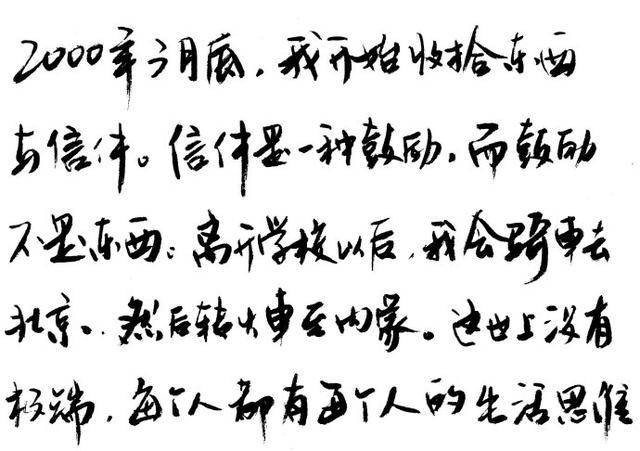 2000年3月底，我开始收拾东西
与信件。信件是一种鼓励，而鼓励
不是东西。离开学校以后，我会骑车去
北京。然后转火车至内蒙。这世上没有
极端，每个人都有每个人的生活思维